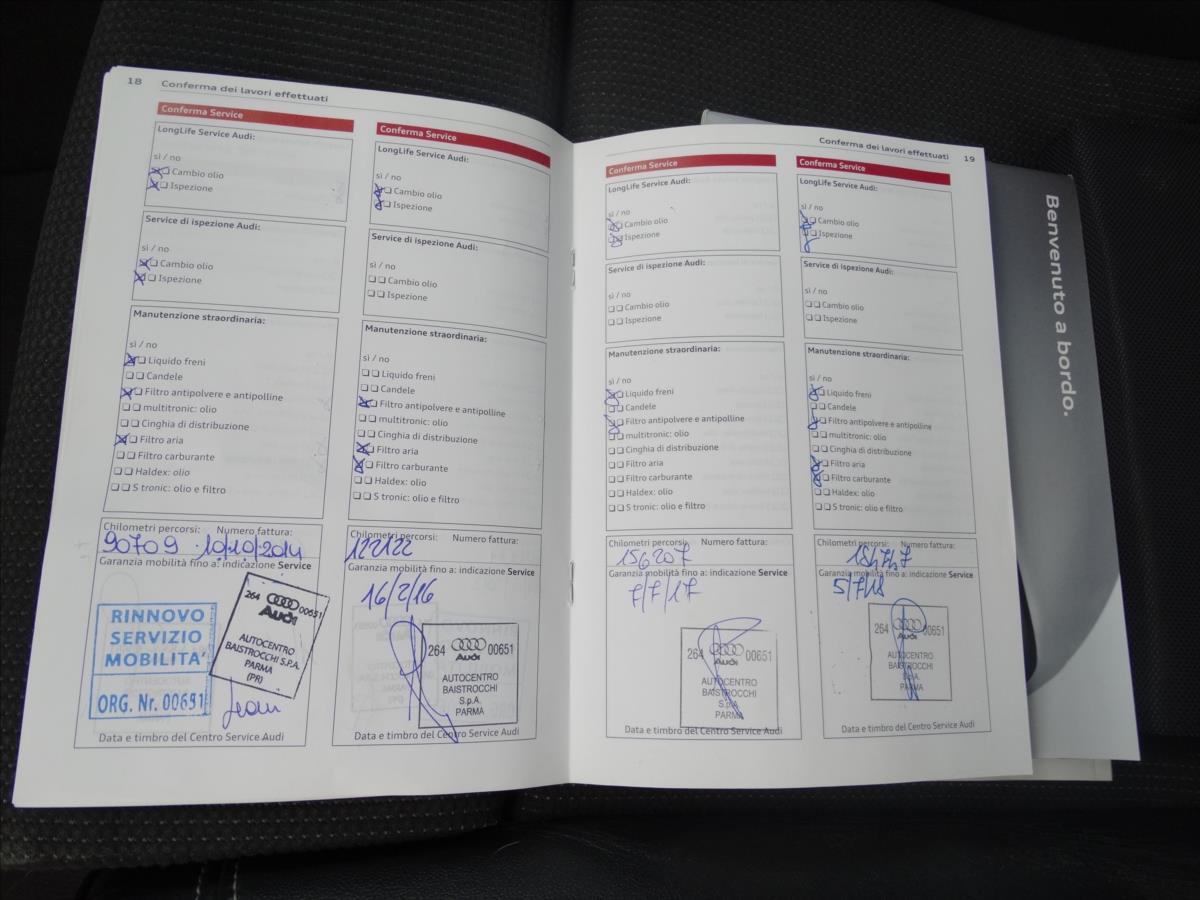 18 Conferma dei lavori effettuati
Conferma Service
LongLife Service Audi:
sì / no
Cambio olio
Ispezione
Service di ispezione Audi:
sì / no
Cambio olio
Ispezione
Manutenzione straordinaria:
sì / no
Liquido freni
Candele
Filtro antipolvere e antipolline
multitronic: olio
Cinghia di distribuzione
Filtro aria
Filtro carburante
Haldex: olio
S tronic: olio e filtro
Chilometri percorsi: Numero fattura:
90709 10/10/2014
Garanzia mobilità fino a: indicazione Service
RINNOVO
SERVIZIO
MOBILITA'
ORG. Nr. 00651
264 00651
Audi
AUTOCENTRO
BAISTROCCHI S.P.A.
PARMA
(PR)
Data e timbro del Centro Service Audi
Conferma Service
LongLife Service Audi:
sì / no
Cambio olio
Ispezione
Service di ispezione Audi:
sì / no
Cambio olio
Ispezione
Manutenzione straordinaria:
sì / no
Liquido freni
Candele
Filtro antipolvere e antipolline
multitronic: olio
Cinghia di distribuzione
Filtro aria
Filtro carburante
Haldex: olio
S tronic: olio e filtro
Chilometri percorsi: Numero fattura:
122122
Garanzia mobilità fino a: indicazione Service
16/2/16
264 00651
Audi
AUTOCENTRO
BAISTROCCHI
S.p.A.
PARMA
Data e timbro del Centro Service Audi
Conferma dei lavori effettuati 19
Conferma Service
LongLife Service Audi:
sì / no
Cambio olio
Ispezione
Service di ispezione Audi:
sì / no
Cambio olio
Ispezione
Manutenzione straordinaria:
sì / no
Liquido freni
Candele
Filtro antipolvere e antipolline
multitronic: olio
Cinghia di distribuzione
Filtro aria
Filtro carburante
Haldex: olio
S tronic: olio e filtro
Chilometri percorsi: Numero fattura:
156207
Garanzia mobilità fino a: indicazione Service
7/7/17
264 00651
Audi
AUTOCENTRO
BAISTROCCHI
S.p.A.
PARMA
Data e timbro del Centro Service Audi
Conferma Service
LongLife Service Audi:
sì / no
Cambio olio
Ispezione
Service di ispezione Audi:
sì / no
Cambio olio
Ispezione
Manutenzione straordinaria:
sì / no
Liquido freni
Candele
Filtro antipolvere e antipolline
multitronic: olio
Cinghia di distribuzione
Filtro aria
Filtro carburante
Haldex: olio
S tronic: olio e filtro
Chilometri percorsi: Numero fattura:
Garanzia mobilità fino a: indicazione Service
5/7/18
264 00651
Audi
AUTOCENTRO
BAISTROCCHI
S.p.A.
PARMA
Data e timbro del Centro Service Audi
Benvenuto a bordo.